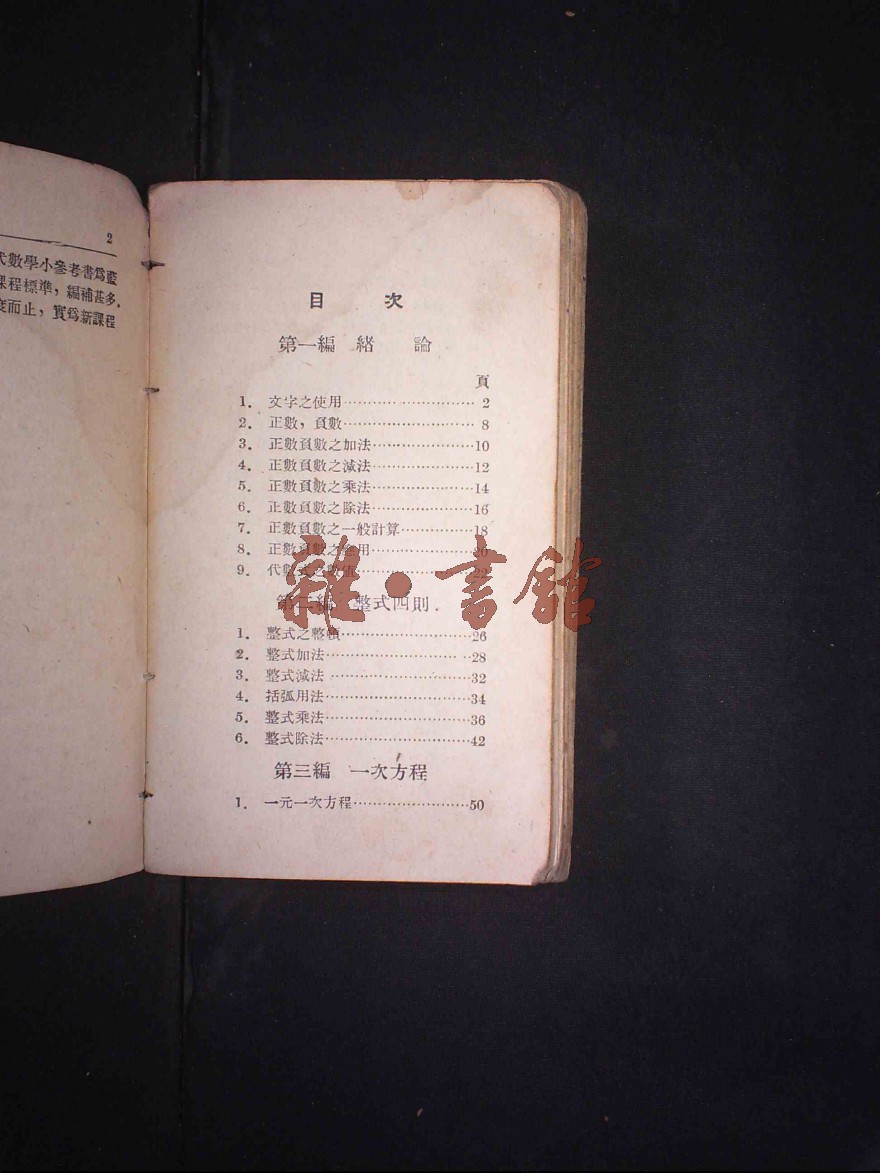 2
代數學小參考書爲藍
課程標準，編補甚多，
度而止，實爲新課程
目 次
第一編 緒 論
頁
1. 文字之使用…………………………2
2. 正數，負數…………………………8
3. 正數負數之加法……………………10
4. 正數負數之減法……………………12
5. 正數負數之乘法……………………14
6. 正數負數之除法……………………16
7. 正數負數之一般計算………………18
8. 正數負數之應用……………………20
9. 代數式之數值………………………22
第二編 整式四則
1. 整式之整頓…………………………26
2. 整式加法……………………………28
3. 整式減法……………………………32
4. 括弧用法……………………………34
5. 整式乘法……………………………36
6. 整式除法……………………………42
第三編 一次方程
1. 一元一次方程………………………50
雜·書館